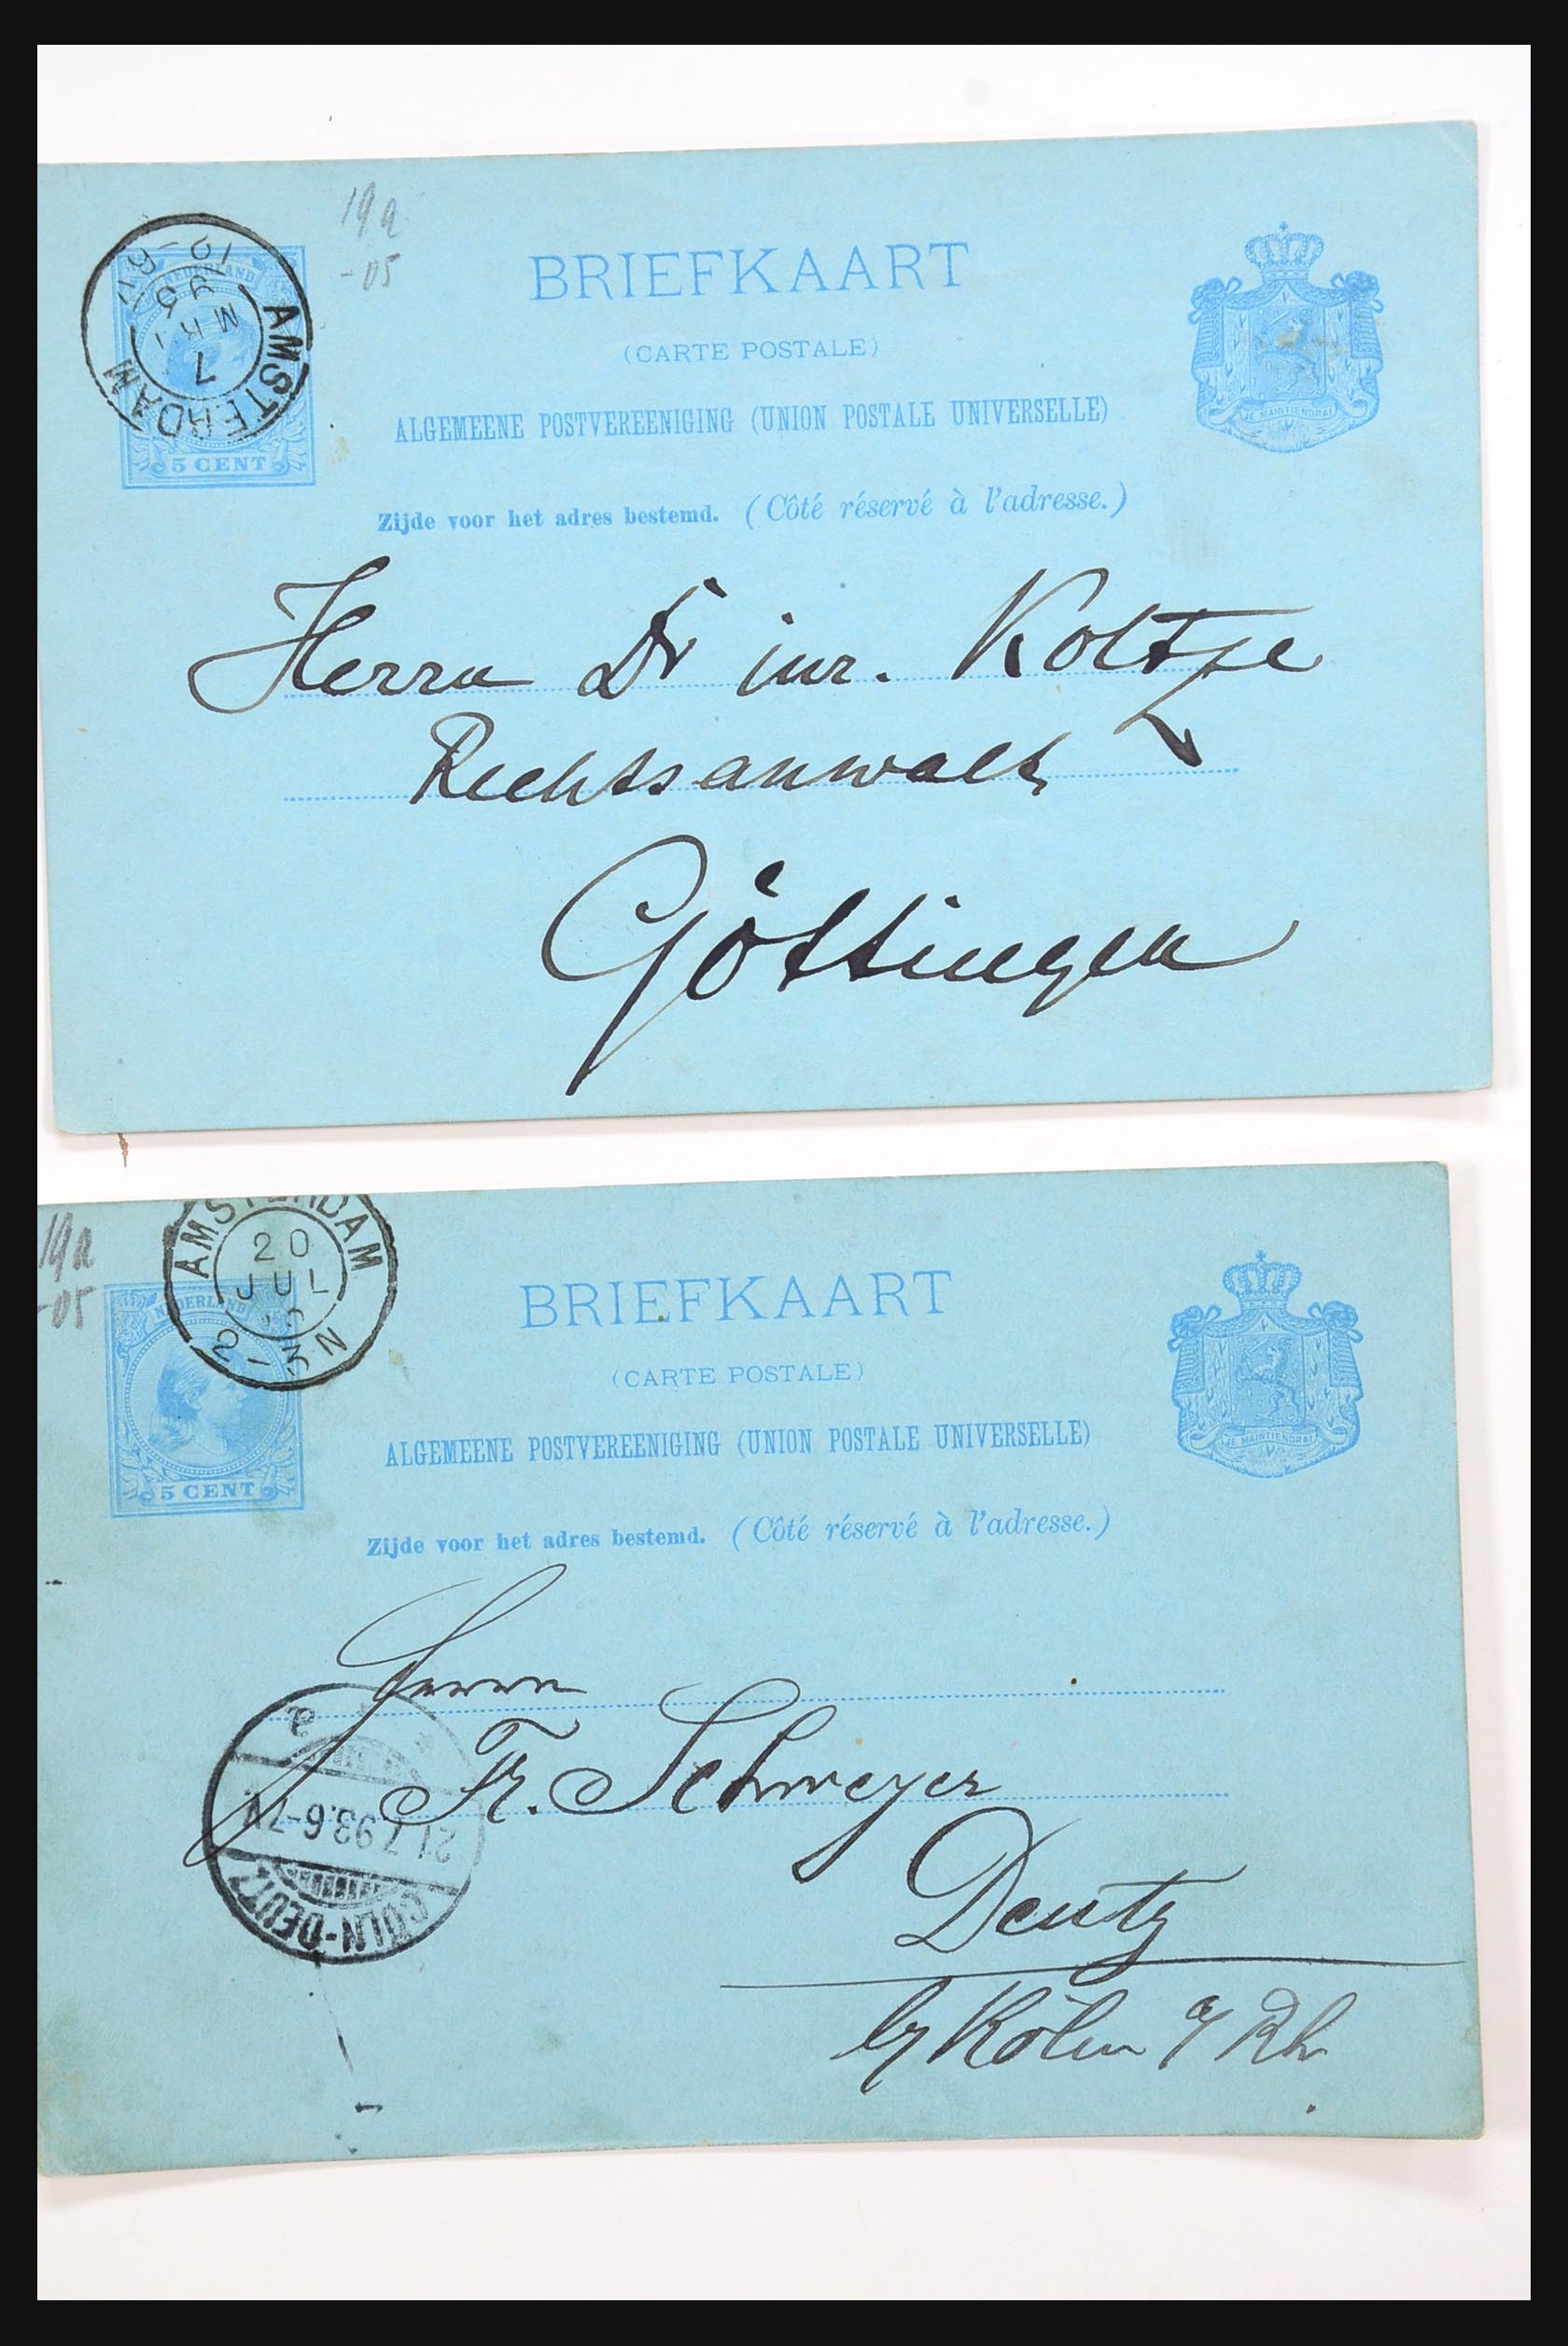 19a
-05
NEDERLAND
5 CENT
AMSTERDAM
7
MRT
95
BRIEFKAART
(CARTE POSTALE)
ALGEMEENE POSTVEREENIGING (UNION POSTALE UNIVERSELLE)
JE MAINTIENDRAI
Zijde voor het adres bestemd. (Côté réservé à l'adresse.)
Herrn Dr jur. Koltze
Rechtsanwalt
Göttingen
19a
-05
NEDERLAND
5 CENT
AMSTERDAM
20
JUL
BRIEFKAART
(CARTE POSTALE)
ALGEMEENE POSTVEREENIGING (UNION POSTALE UNIVERSELLE)
JE MAINTIENDRAI
Zijde voor het adres bestemd. (Côté réservé à l'adresse.)
Herrn
Fr. Schmeyer
Deutz
by Köln a/ Rh.
CÖLN-DEUTZ
21.7.93.6-7N.